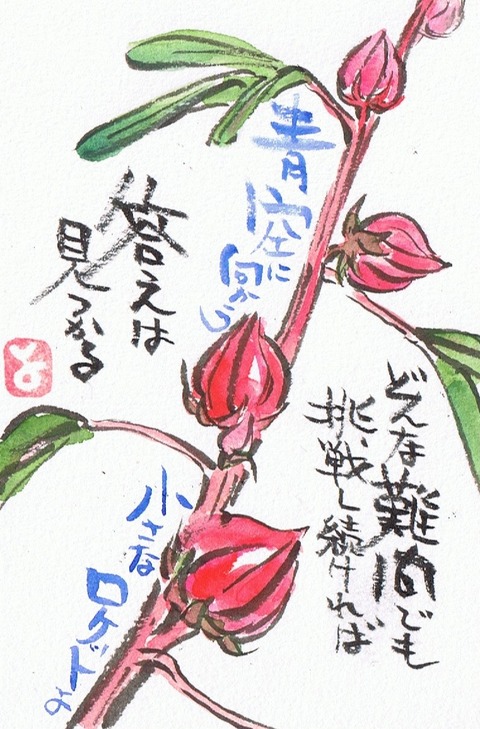 どんな難問でも
挑戦し続ければ
答えは
見つかる
青空に
向かう
小さな
ロケットよ